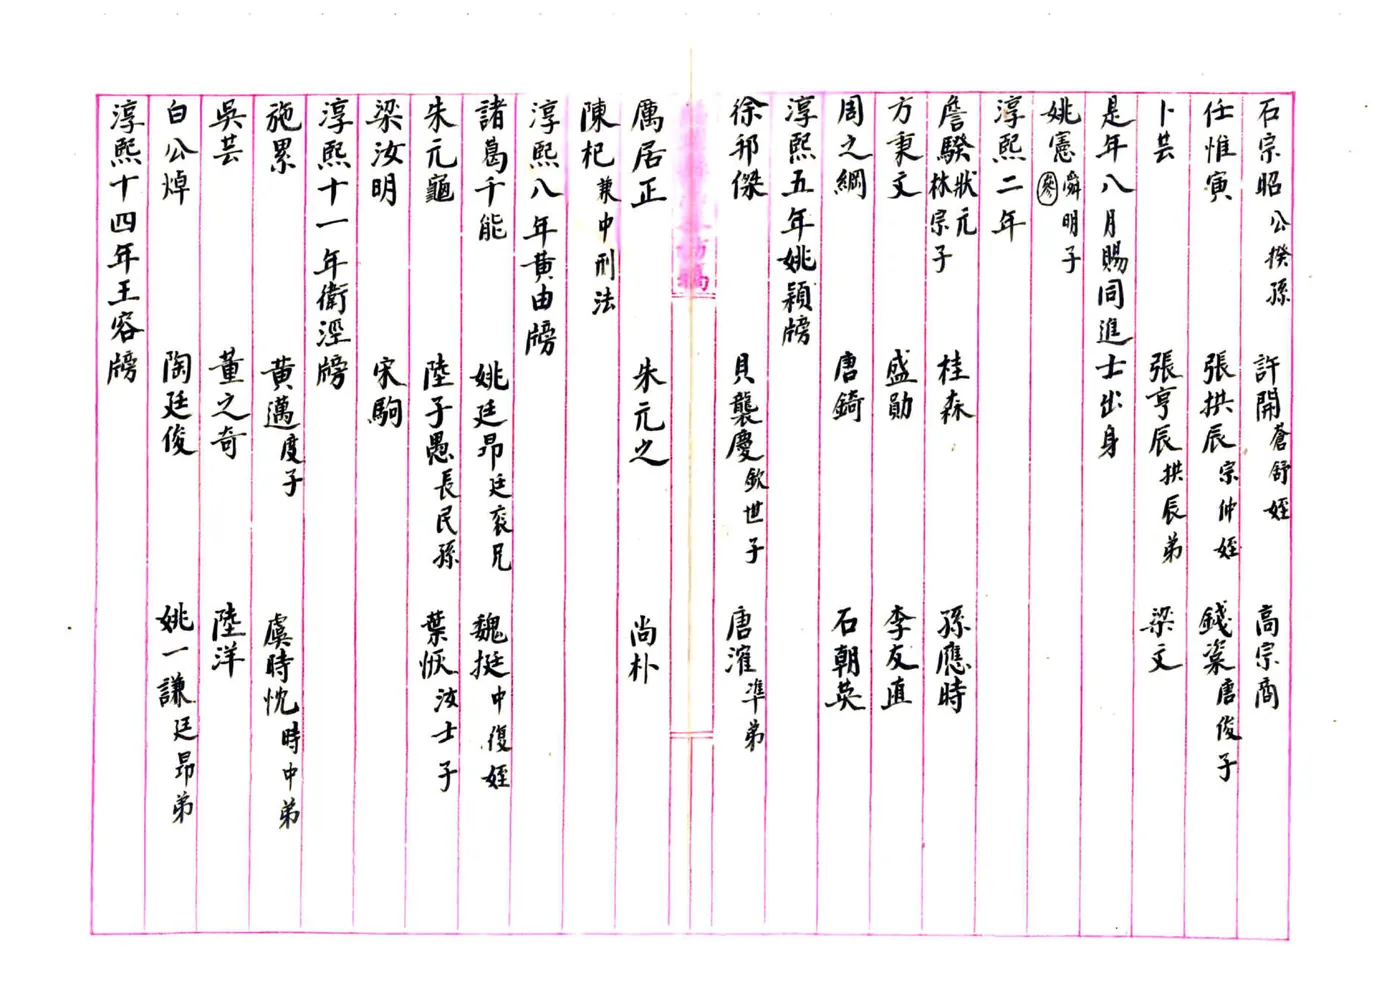 石宗昭公揆孫 許開蒼舒姪 高宗商
任惟寅 張拱辰宗仲姪 錢粢唐俊子
卜芸 張亨辰拱辰弟 梁文
是年八月賜同進士出身
姚憲舜明子參
淳熙二年
詹騤狀元林宗子 桂森 孫應時
方秉文 盛勛 李友直
周之綱 唐錡 石朝英
淳熙五年姚穎牓
徐邦傑 貝襲慶欽世子 唐㴶準弟
厲居正 朱元之 尚朴
陳杞兼中刑法
淳熙八年黄由牓
諸葛千能 姚廷昂廷衮兄 魏挺中復姪
朱元龜 陸子愚長民孫 葉恢汝士子
梁汝明 宋駒
淳熙十一年衛涇牓
施累 黄邁度子 虞時忱時中弟
吳芸 董之奇 陸洋
白公焯 陶廷俊 姚一謙廷昂弟
淳熙十四年王容牓